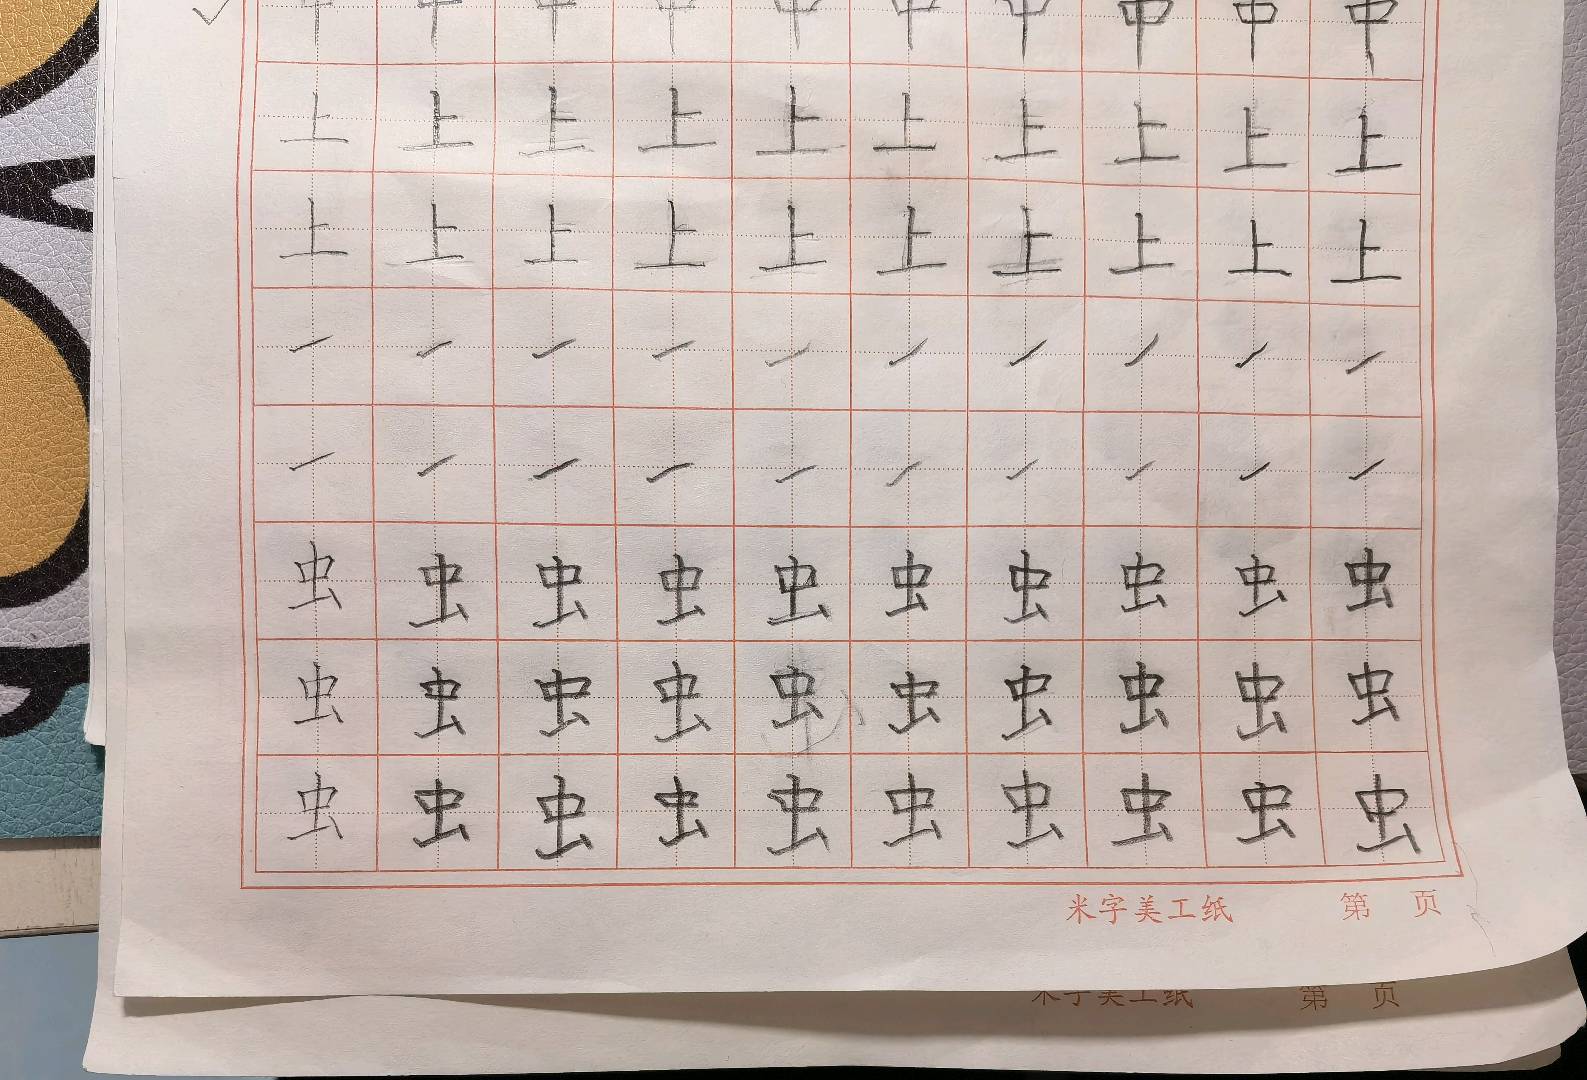 中中中中中中中中中中
上上上上上上上上上上
上上上上上上上上上上
虫虫虫虫虫虫虫虫虫虫
虫虫虫虫虫虫虫虫虫虫
虫虫虫虫虫虫虫虫虫虫
米字美工纸 第 页
米字美工纸 第 页